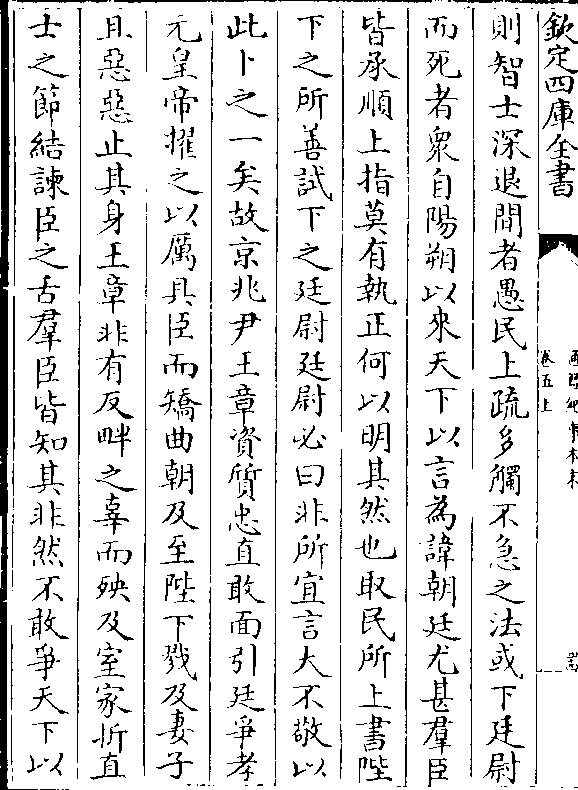 欽定四庫全書
卷五上
則智士深退間者愚民上疏多觸不急之法或下廷尉
而死者衆自陽朔以來天下以言為諱朝廷尤甚羣臣
皆承順上指莫有執正何以明其然也取民所上書陛
下之所善試下之廷尉廷尉必曰非所宜言大不敬以
此卜之一矣故京兆尹王章資質忠直敢面引廷爭孝
元皇帝擢之以厲具臣而矯曲朝及至陛下戮及妻子
且惡惡止其身王章非有反畔之辜而殃及室家折直
士之節結諫臣之舌羣臣皆知其非然不敢爭天下以